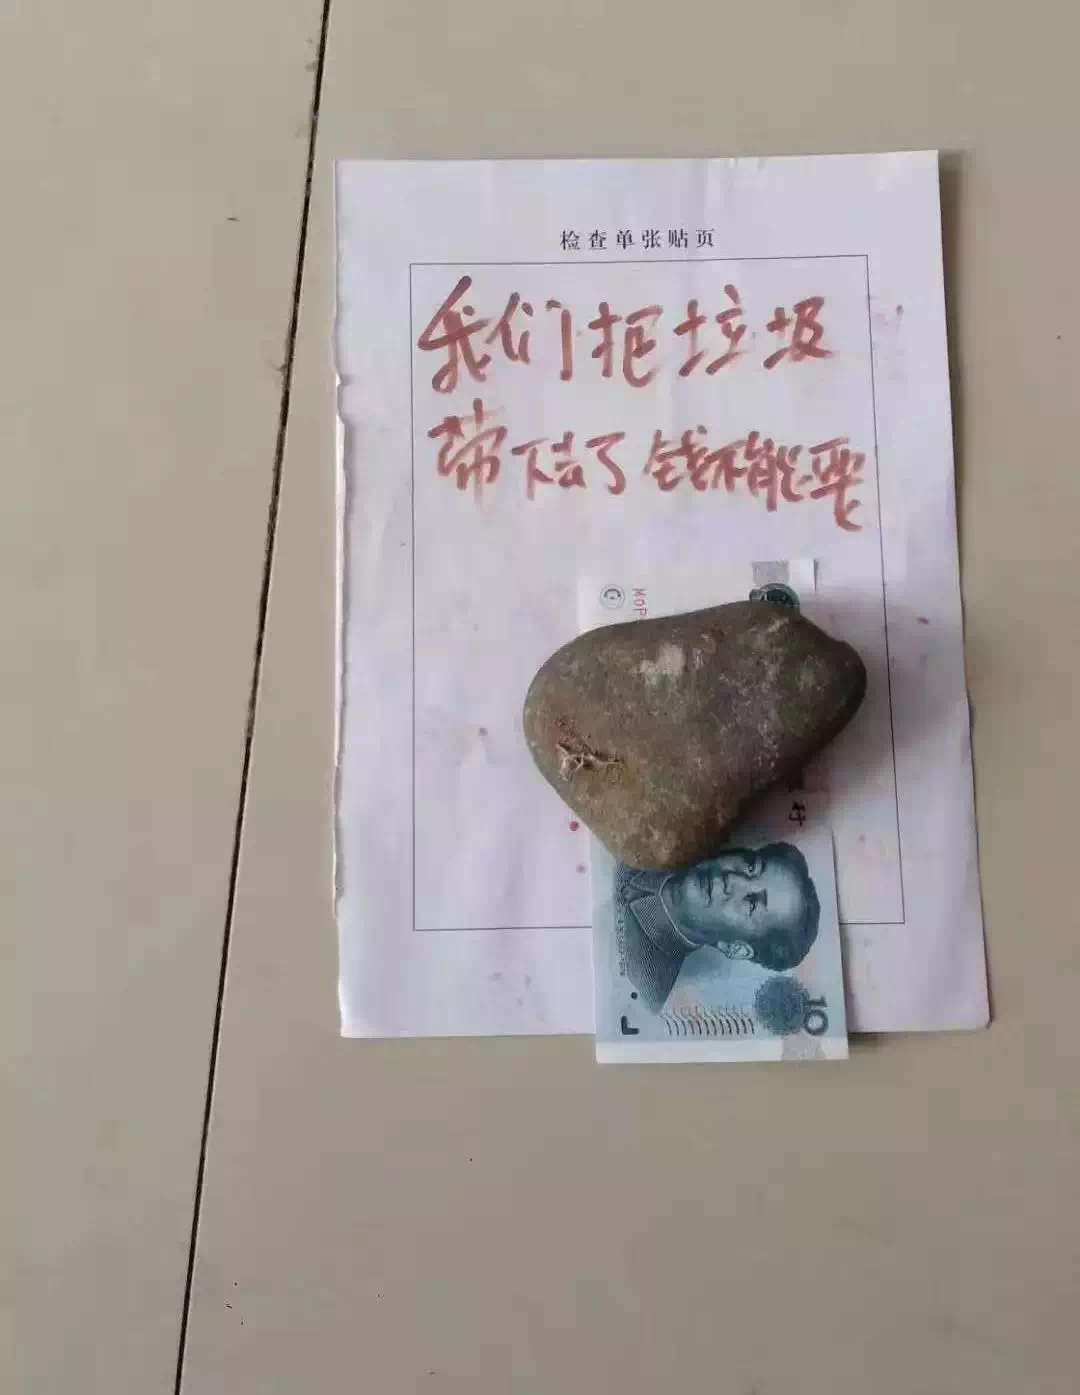 检查单张贴页
我们把垃圾
带下去了钱不能要
MOP
行
10